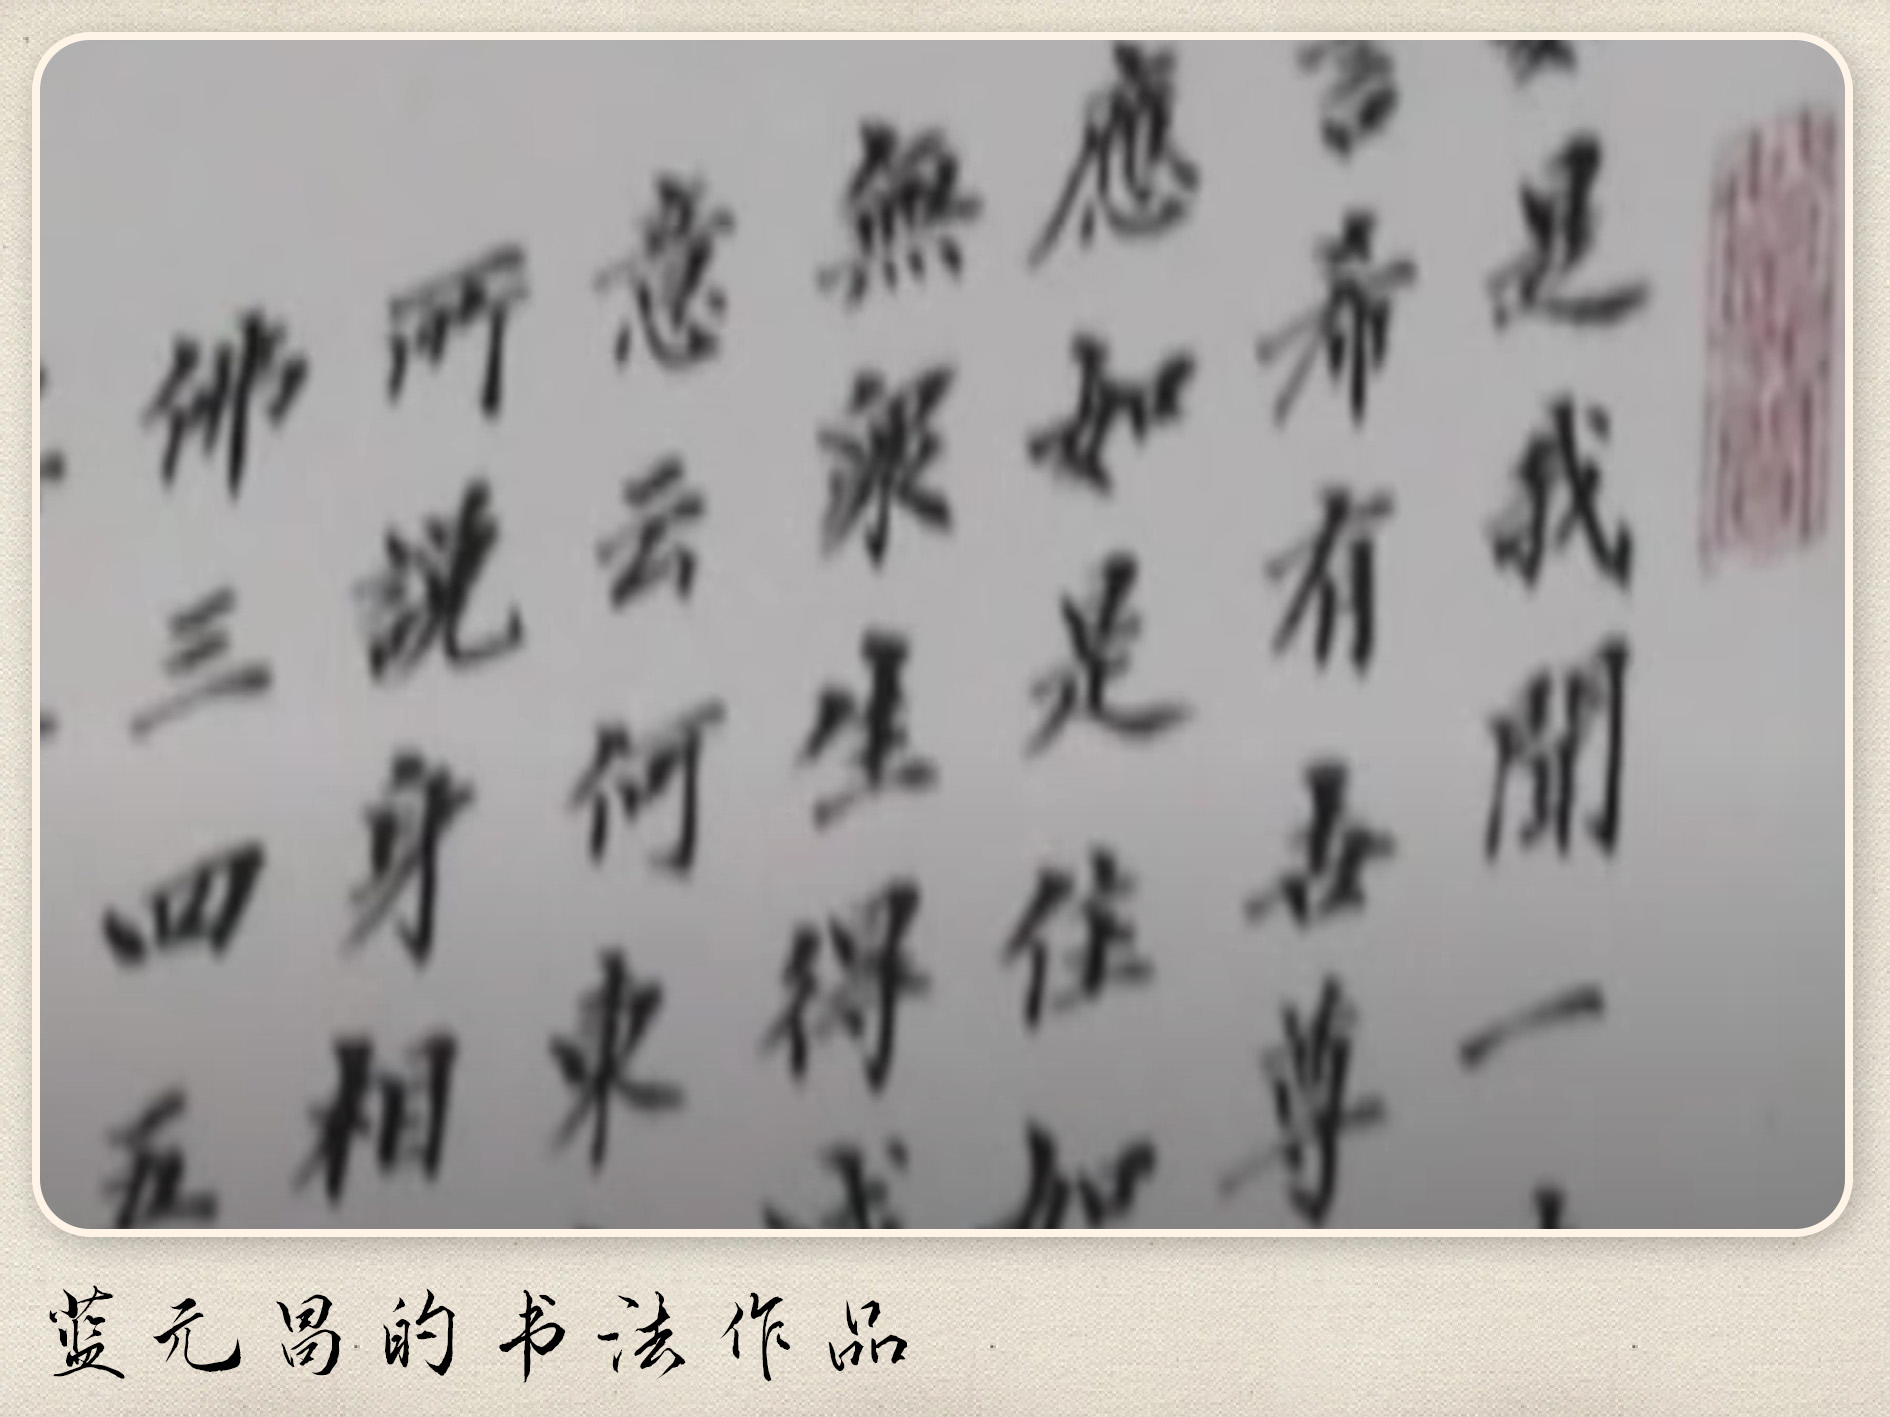 是我聞一
言希有世尊
應如是住如
無眾生得滅
意云何東
所說身相
佛三四五
蓝元昌的书法作品